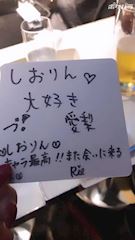 しおりん♡
大好き
愛梨
しおりん♡
キャラ最高!!また会いに来る